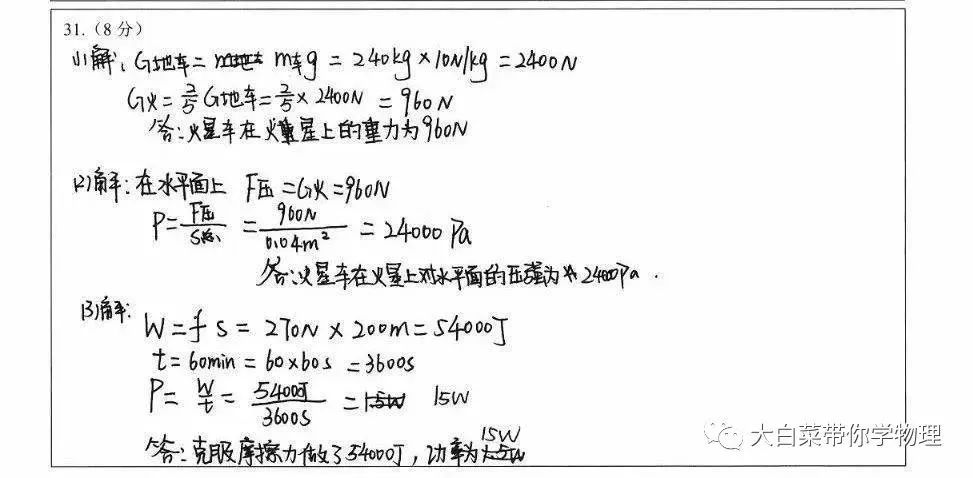 31.（8分）
(1)解：G地车=m车g=240kg×10N/kg=2400N
G火=2/5G地车=2/5×2400N=960N
答：火星车在火星上的重力为960N
(2)解：在水平面上 F压=G火=960N
P=F压/S总=960N/0.04m²=24000Pa
答：火星车在火星上对水平面的压强为24000Pa.
(3)解：
W=fs=270N×200m=54000J
t=60min=60×60s=3600s
P=W/t=54000J/3600s=15W
答：克服摩擦力做了54000J，功率为15W
大白菜带你学物理